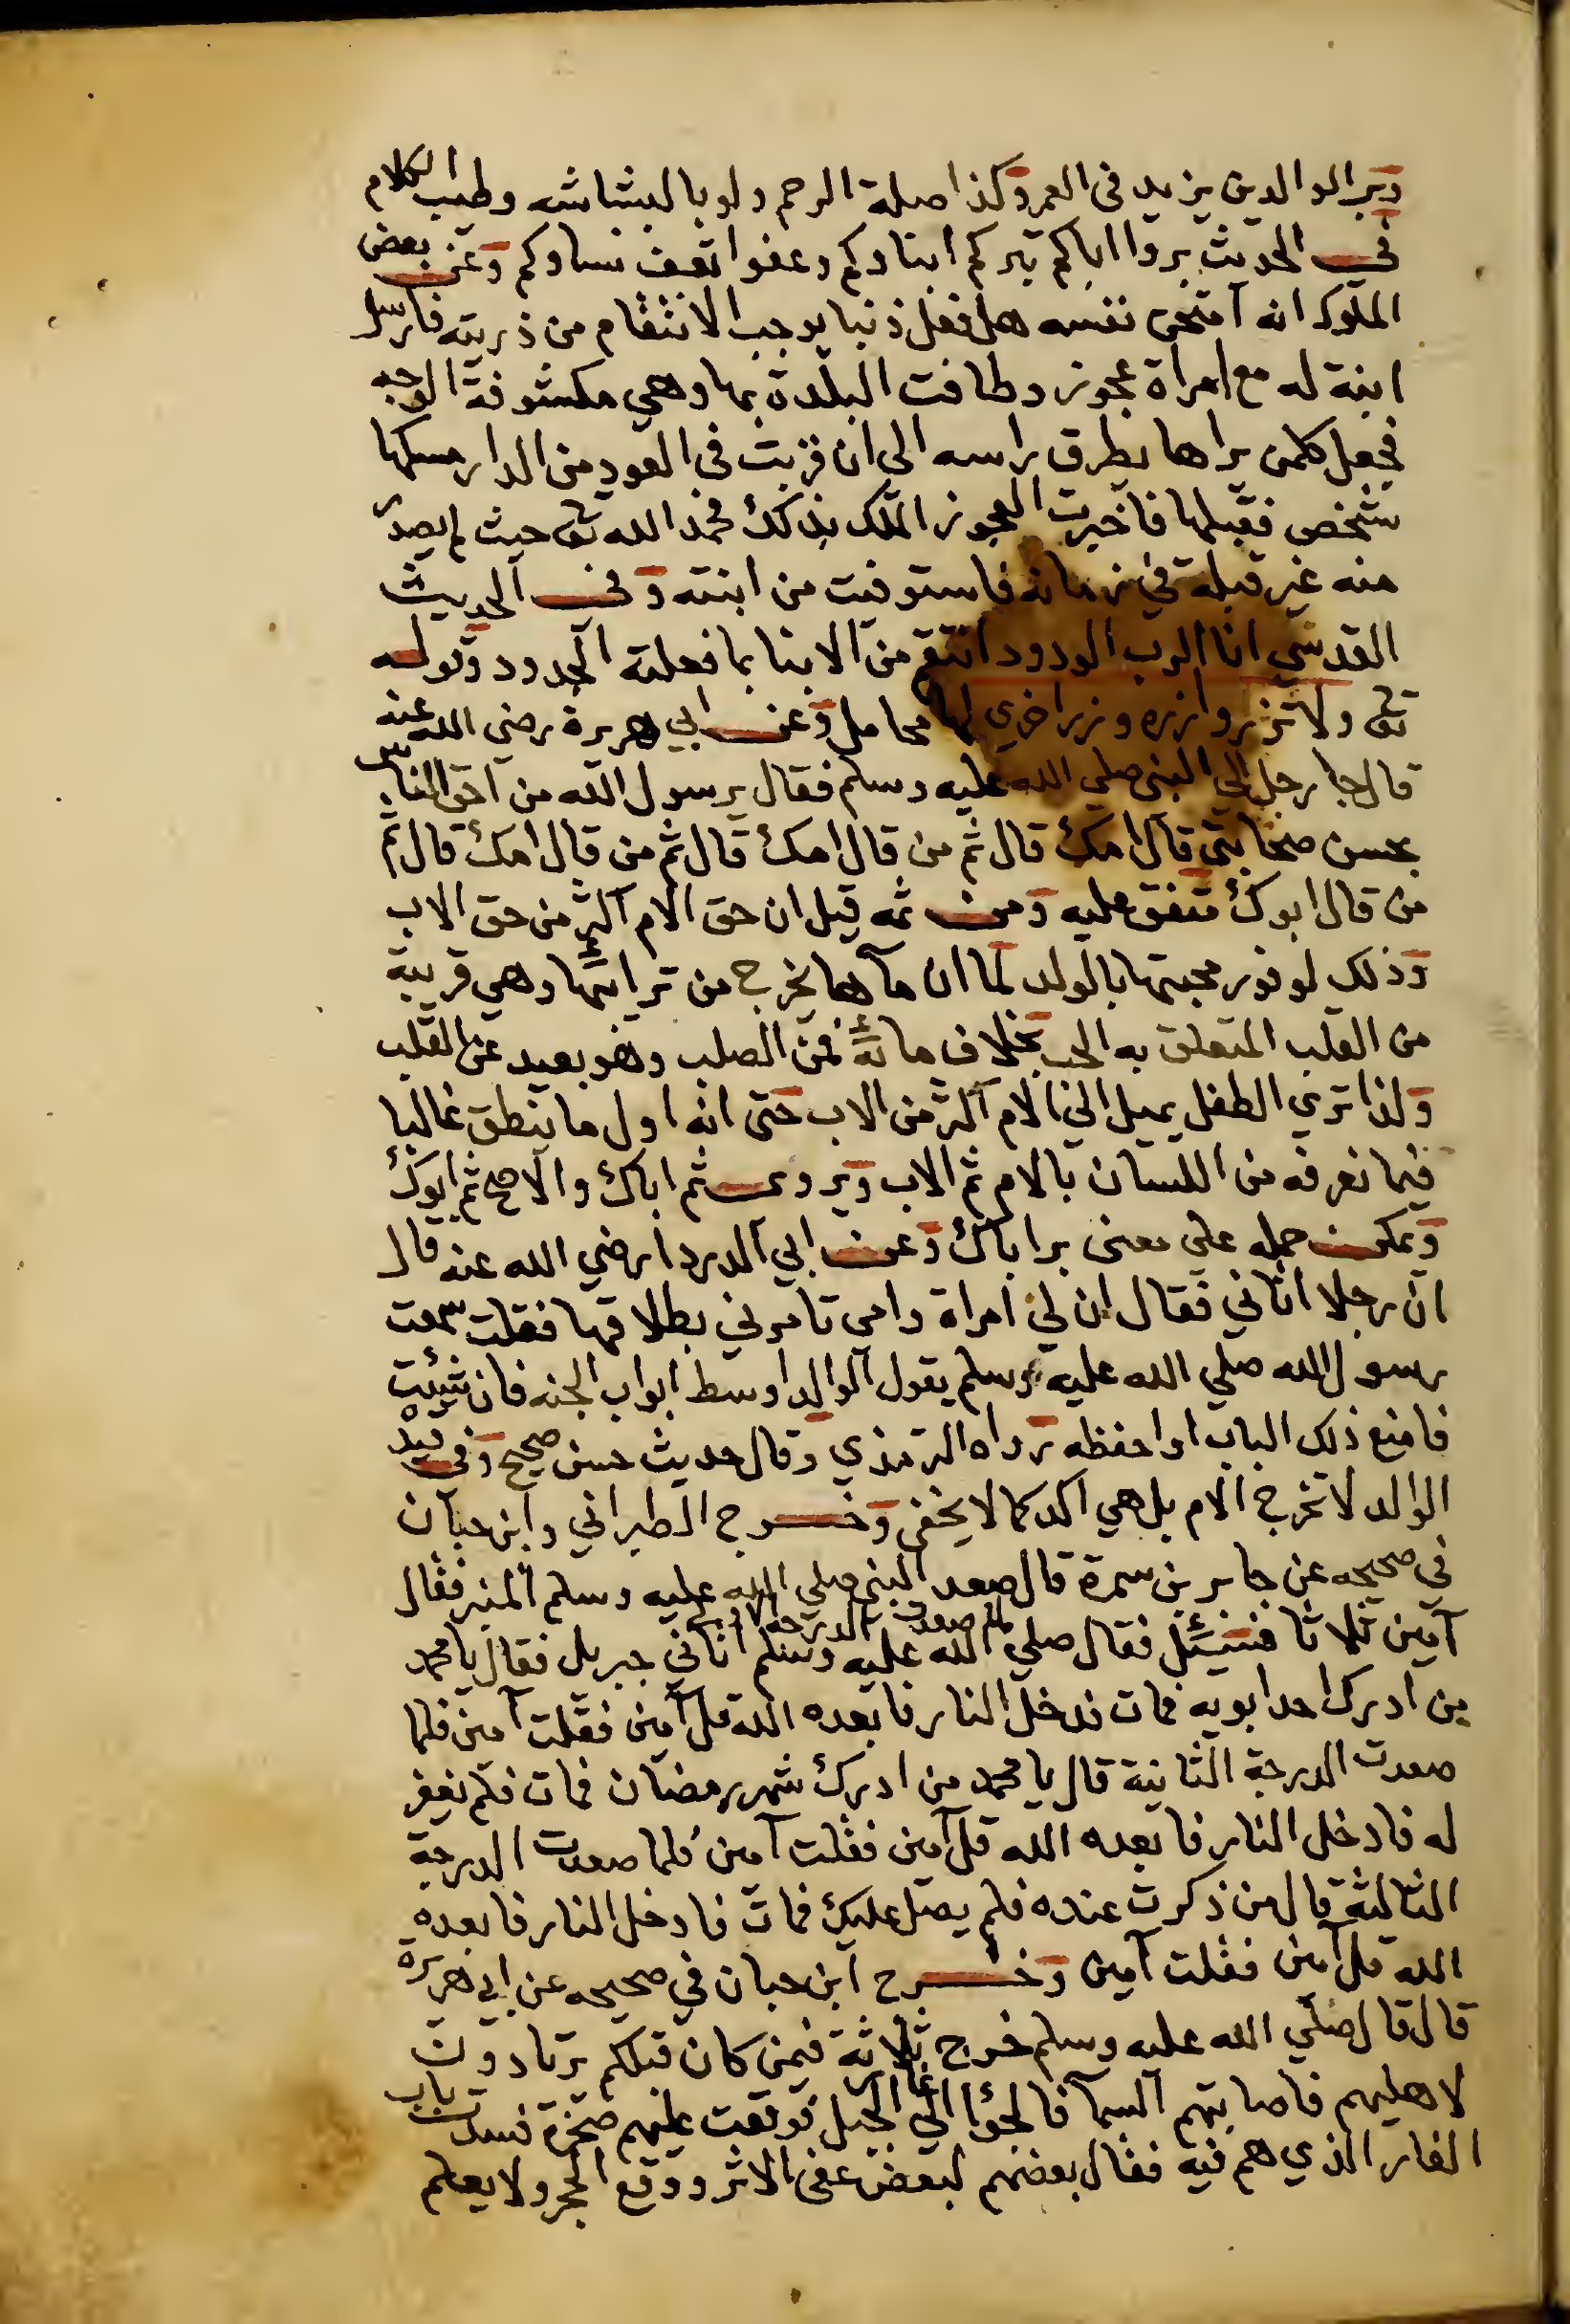 وبر الوالدين يزيد في العمر وكذا صلة الرحم ولو بالبشاشه وطيب الكلام
في الحديث بروا اباكم تبركم ابناوكم وعفوا تعف نساوكم وعن بعض
الملوك انه امتحن نفسه هل فعل ذنبا يوجب الانتقام من ذريته فارسل
ابنة له مع امراة عجوز وطافت البلدة بها وهي مكشوفة الوجه
فجعل كلمن يراها يطرق راسه الى ان قربت في العود من الدار مسكها
شخص فقبلها فاخبرت العجوز الملك بذلك فحمد الله تعالى حيث لم يصدر
منه غير قبلة في زمانه فاستوفيت من ابنته وفي الحديث
القدسي انا الرب الودود انتقم من الابنا بما فعلته الجدود وقوله
تعالى ولا تزر وازره وزر اخري لها محامل وعن ابي هريرة رضي الله عنه
قال جا رجل الي النبي صلي الله عليه وسلم فقال يرسول الله من احق الناس
بحسن صحابتي قال امك قال ثم من قال امك قال ثم من قال امك قال ثم
من قال ابوك متفق عليه ومن ثمه قيل ان حق الام اكثر من حق الاب
وذلك لوفور محبتها بالولد لما ان مآها يخرج من ترائبها وهي قريبة
من القلب المتعلق به الحب بخلاف مائه فمن الصلب وهو بعيد عن القلب
ولذا تري الطفل يميل الي الام اكثر من الاب حتى انه اول ما ينطق غالبا
فيما نعرفه من اللسان بالام ثم الاب ويروى ثم اباك والاصح ثم ابوك
ويمكن حمله علي معنى بر اباك وعن ابي الدردا رضي الله عنه قال
ان رجلا اتاني فقال ان لي امراة وامي تامرني بطلاقها فقلت سمعت
رسول الله صلي الله عليه وسلم يقول الوالد اوسط ابواب الجنه فان شئت
فامنع ذلك الباب او احفظه رواه الترمذي وقال حديث حسن صحيح وفي قيد
الوالد لا تخرج الام بل هي اكد كما لا يخفى وخرج الطبراني وابن حبان
في صحيحه عن جابر بن سمرة قال صعد النبي صلي الله عليه وسلم المنبر فقال
لما صعدت الدرجة الاولى
آمين ثلاثا فسئل فقال صلي الله عليه وسلم اتاني جبريل فقال يا محمد
من ادرك احد ابويه فمات فدخل النار فابعده الله قل آمين فقلت آمين فلما
صعدت الدرجة الثانية قال يا محمد من ادرك شهر رمضان فمات فلم يغفر
له فادخل النار فابعده الله قل آمين فقلت آمين فلما صعدت الدرجة
الثالثة قال من ذكرت عنده فلم يصل عليك فمات فادخل النار فابعده
الله قل آمين فقلت آمين وخرج ابن حبان في صحيحه عن ابي هريرة
قال قال صلي الله عليه وسلم خرج ثلاثة فيمن كان قبلكم يرتادون
لاهليهم فاصابتهم السما فالجؤا الي غار الجبل فوقعت عليهم صخرة فسدت باب
الغار الذي هم فيه فقال بعضهم لبعض عفى الاثر ووقع الحجر ولا يعلم